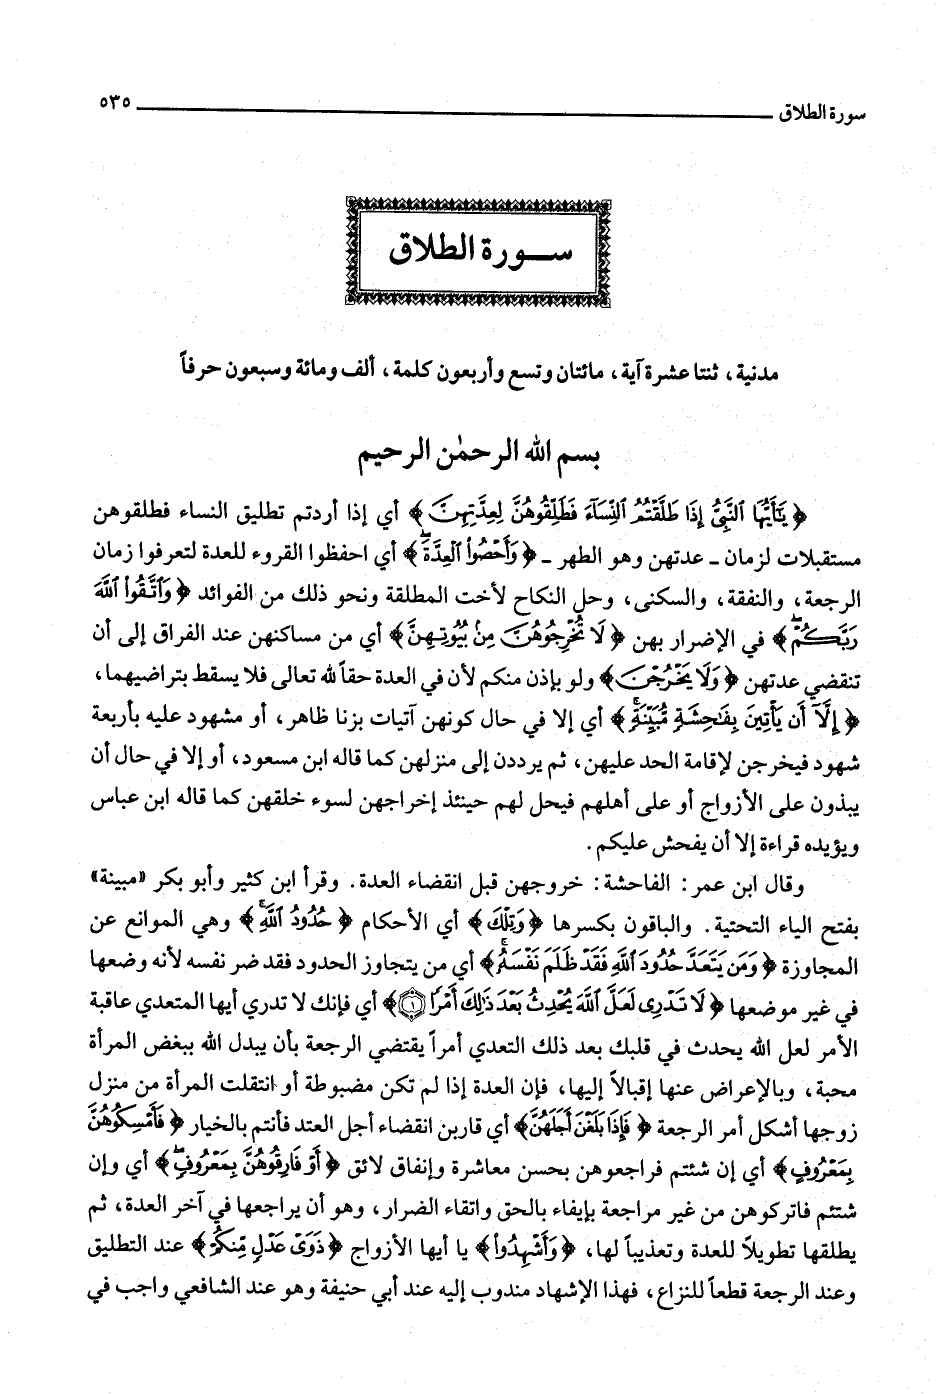 سورة الطلاق ٥٣٥
ســورة الطلاق
مدنية، ثنتا عشرة آية، مائتان وتسع وأربعون كلمة، ألف ومائة وسبعون حرفاً
بسم الله الرحمٰن الرحيم
﴿ يَٰٓأَيُّهَا ٱلنَّبِىُّ إِذَا طَلَّقْتُمُ ٱلنِّسَآءَ فَطَلِّقُوهُنَّ لِعِدَّتِهِنَّ ﴾ أي إذا أردتم تطليق النساء فطلقوهن
مستقبلات لزمان ـ عدتهن وهو الطهر ـ ﴿ وَأَحْصُوا۟ ٱلْعِدَّةَۖ ﴾ أي احفظوا القروء للعدة لتعرفوا زمان
الرجعة، والنفقة، والسكنى، وحل النكاح لأخت المطلقة ونحو ذلك من الفوائد ﴿ وَٱتَّقُوا۟ ٱللَّهَ
رَبَّكُمْۖ ﴾ في الإضرار بهن ﴿ لَا تُخْرِجُوهُنَّ مِنۢ بُيُوتِهِنَّ ﴾ أي من مساكنهن عند الفراق إلى أن
تنقضي عدتهن ﴿ وَلَا يَخْرُجْنَ ﴾ ولو بإذن منكم لأن في العدة حقاً لله تعالى فلا يسقط بتراضيهما،
﴿ إِلَّآ أَن يَأْتِينَ بِفَٰحِشَةٍ مُّبَيِّنَةٍۚ ﴾ أي إلا في حال كونهن آتيات بزنا ظاهر، أو مشهود عليه بأربعة
شهود فيخرجن لإقامة الحد عليهن، ثم يرددن إلى منزلهن كما قاله ابن مسعود، أو إلا في حال أن
يبذون على الأزواج أو على أهلهم فيحل لهم حينئذ إخراجهن لسوء خلقهن كما قاله ابن عباس
ويؤيده قراءة إلا أن يفحش عليكم.
وقال ابن عمر: الفاحشة: خروجهن قبل انقضاء العدة. وقرأ ابن كثير وأبو بكر «مبينة»
بفتح الياء التحتية. والباقون بكسرها ﴿ وَتِلْكَ ﴾ أي الأحكام ﴿ حُدُودُ ٱللَّهِۚ ﴾ وهي الموانع عن
المجاوزة ﴿ وَمَن يَتَعَدَّ حُدُودَ ٱللَّهِ فَقَدْ ظَلَمَ نَفْسَهُۥۚ ﴾ أي من يتجاوز الحدود فقد ضر نفسه لأنه وضعها
في غير موضعها ﴿ لَا تَدْرِى لَعَلَّ ٱللَّهَ يُحْدِثُ بَعْدَ ذَٰلِكَ أَمْرًا ١ ﴾ أي فإنك لا تدري أيها المتعدي عاقبة
الأمر لعل الله يحدث في قلبك بعد ذلك التعدي أمراً يقتضي الرجعة بأن يبدل الله ببغض المرأة
محبة، وبالإعراض عنها إقبالاً إليها، فإن العدة إذا لم تكن مضبوطة أو انتقلت المرأة من منزل
زوجها أشكل أمر الرجعة ﴿ فَإِذَا بَلَغْنَ أَجَلَهُنَّ ﴾ أي قاربن انقضاء أجل العتد فأنتم بالخيار ﴿ فَأَمْسِكُوهُنَّ
بِمَعْرُوفٍ ﴾ أي إن شئتم فراجعوهن بحسن معاشرة وإنفاق لائق ﴿ أَوْ فَارِقُوهُنَّ بِمَعْرُوفٍۖ ﴾ أي وإن
شئتم فاتركوهن من غير مراجعة بإيفاء بالحق واتقاء الضرار، وهو أن يراجعها في آخر العدة، ثم
يطلقها تطويلاً للعدة وتعذيباً لها، ﴿ وَأَشْهِدُوا۟ ﴾ يا أيها الأزواج ﴿ ذَوَىْ عَدْلٍ مِّنكُمْ ﴾ عند التطليق
وعند الرجعة قطعاً للنزاع، فهذا الإشهاد مندوب إليه عند أبي حنيفة وهو عند الشافعي واجب في